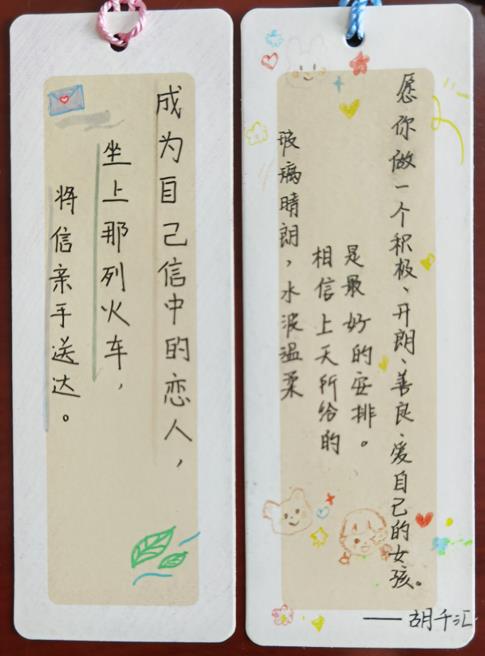 成为自己信中的恋人，
坐上那列火车，
将信亲手送达。
玻璃晴朗，水波温柔
相信上天所给的
是最好的安排。
愿你做一个积极、开朗、善良、爱自己的女孩。
——胡千汇